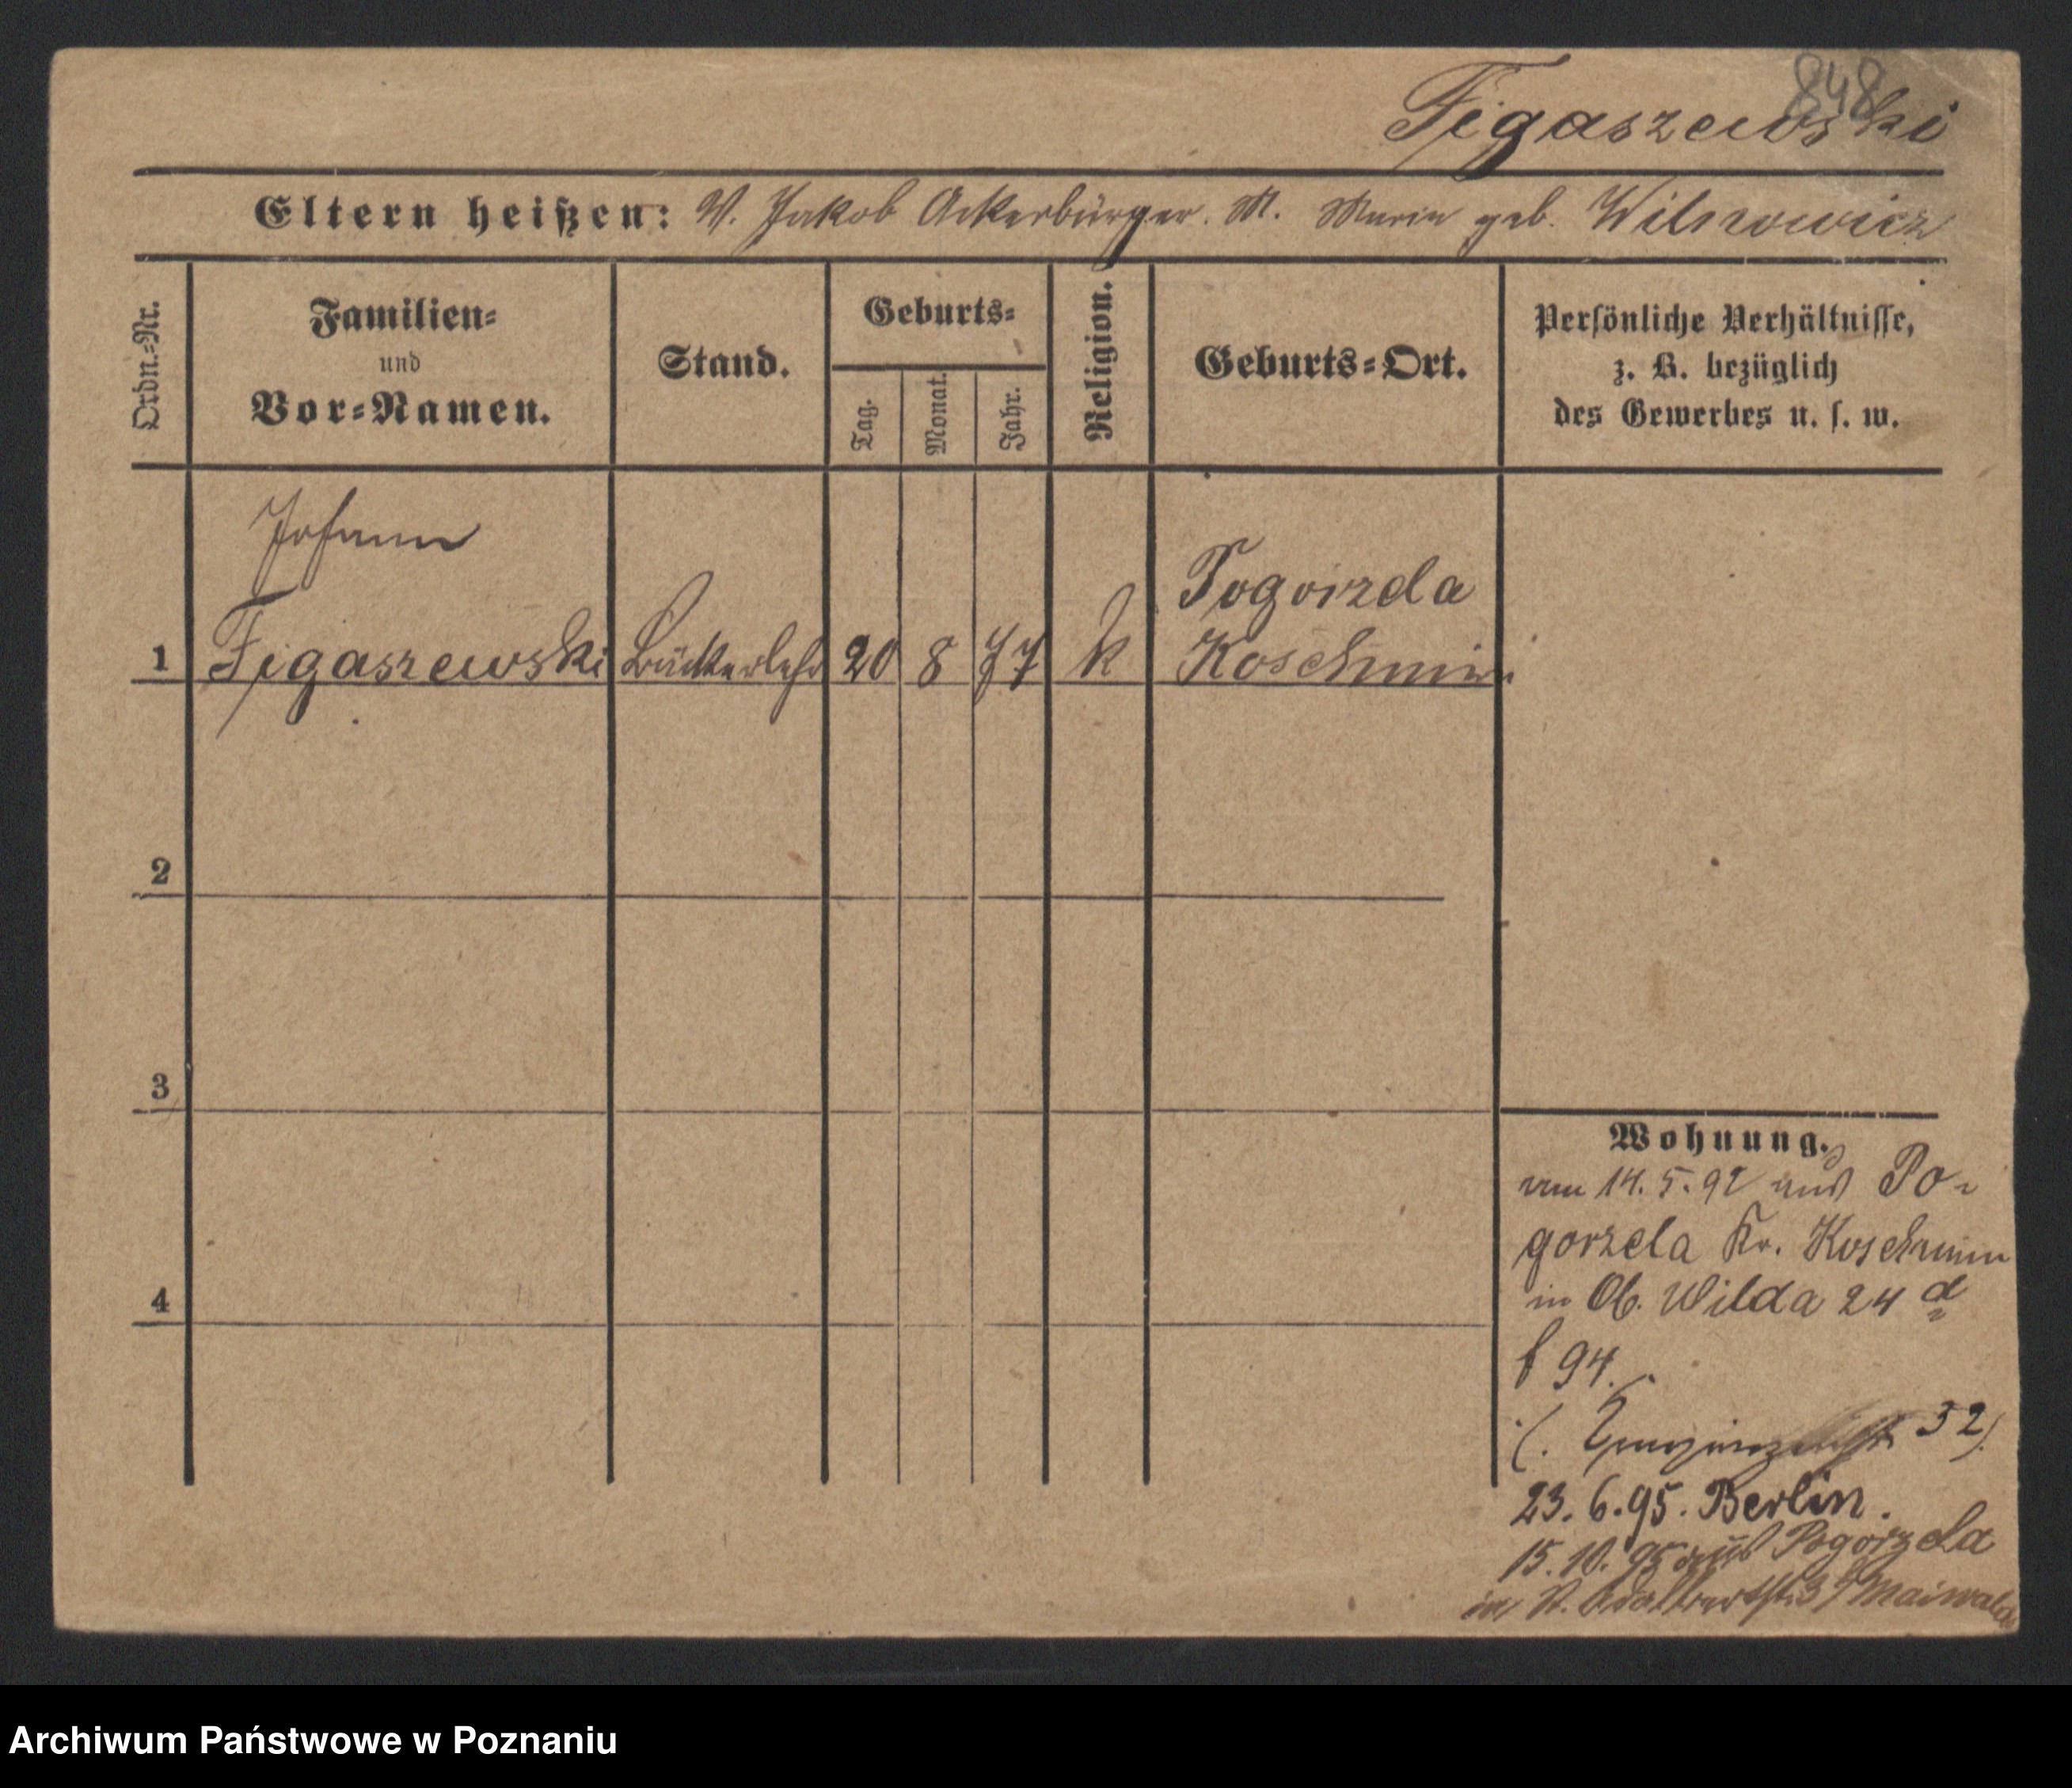 848
Figaszewski
Eltern heißen: V. Jakob Ackerbürger. M. Marie geb. Wilnowicz
Ordn.-Nr.
Familien-
und
Vor-Namen.
Stand.
Geburts-
Tag.
Monat.
Jahr.
Religion.
Geburts-Ort.
Persönliche Verhältnisse,
z. B. bezüglich
des Gewerbes u. s. w.
Johann
Pogorzela
1 Figaszewski Bäckerlehr 20 8 77 k Koschmin
2
3
4
Wohnung.
vom 14. 5. 92 aus Po-
gorzela Kr. Koschmin
in Ob. Wilda 24 d
f 94.
32)
23. 6. 95. Berlin.
15. 10. 95 aus Pogorzela
in St. Adalbertstr. 3 Maiwald
Archiwum Państwowe w Poznaniu